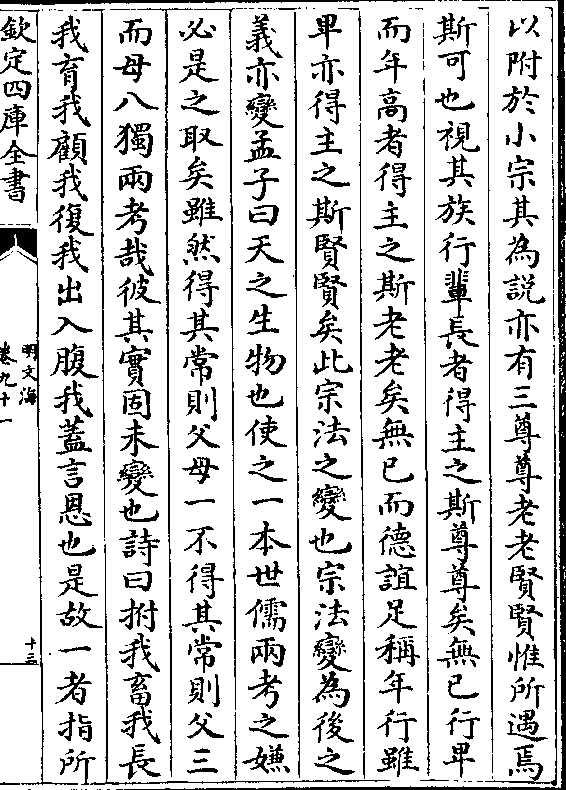 以附於小宗其為説亦有三尊尊老老賢賢惟所遇焉
斯可也視其族行輩長者得主之斯尊尊矣無已行卑
而年高者得主之斯老老矣無已而德誼足稱年行雖
卑亦得主之斯賢賢矣此宗法之變也宗法變為後之
義亦變孟子曰天之生物也使之一本世儒兩考之嫌
必是之取矣雖然得其常則父母一不得其常則父三
而母八獨兩考哉彼其實固未變也詩曰拊我畜我長
我育我顧我復我出入腹我蓋言恩也是故一者指所
欽定四庫全書
明文海
卷九十一
十三